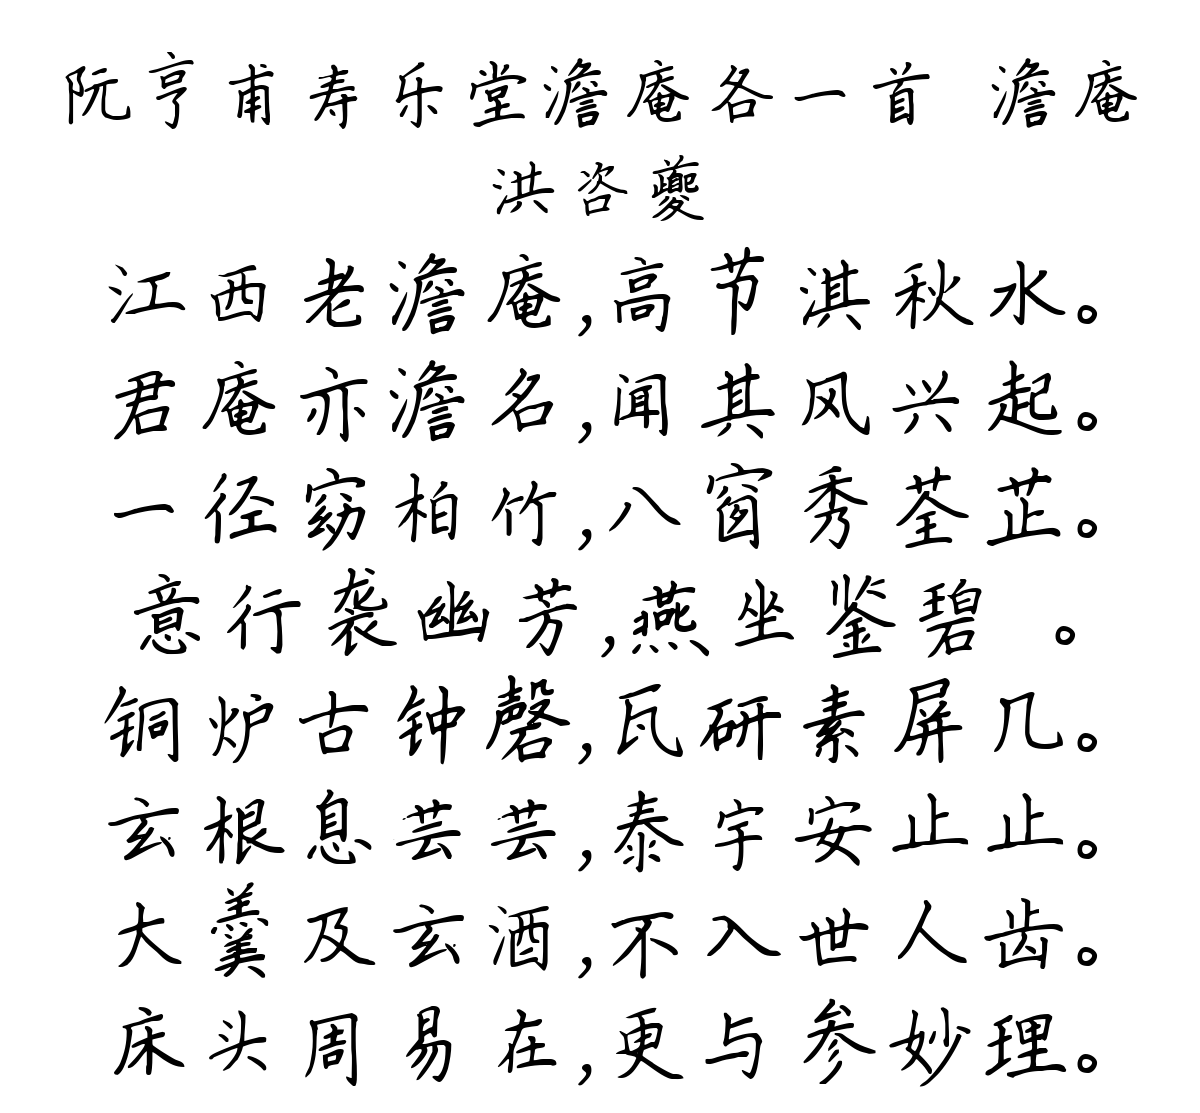 阮亨甫寿乐堂澹庵各一首 澹庵
洪咨夔
江西老澹庵,高节淇秋水。
君庵亦澹名,闻其风兴起。
一径窈柏竹,八窗秀荃芷。
意行袭幽芳,燕坐鉴碧 。
铜炉古钟磬,瓦研素屏几。
玄根息芸芸,泰宇安止止。
大羹及玄酒,不入世人齿。
床头周易在,更与参妙理。